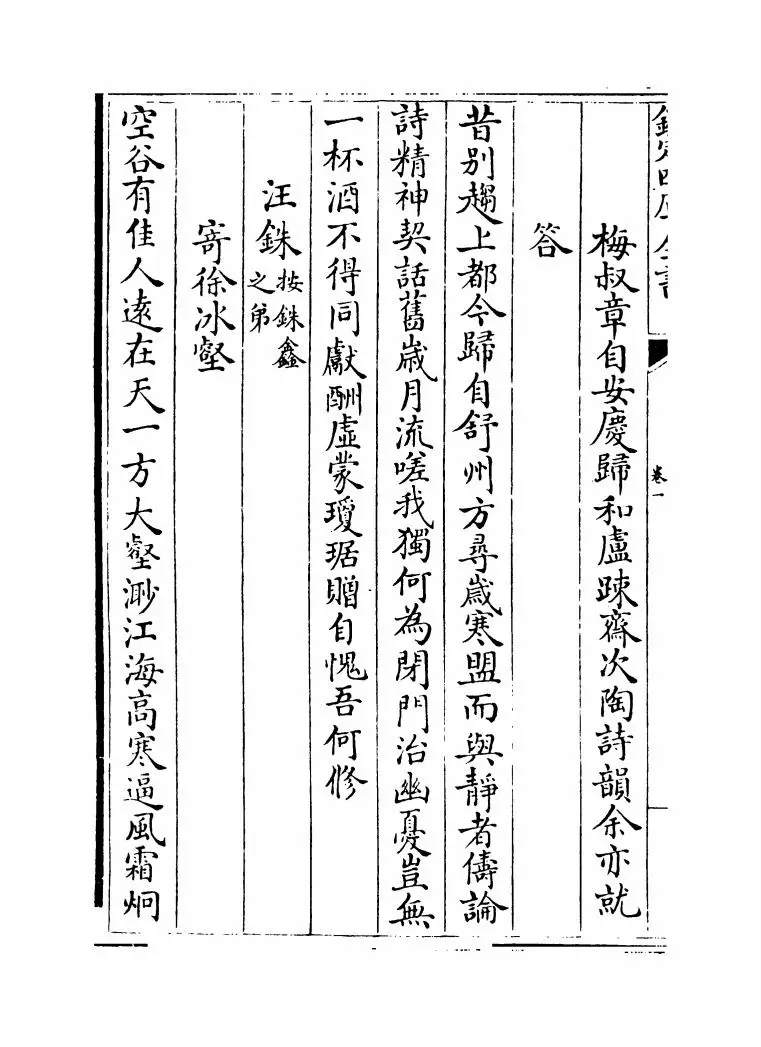 欽定四庫全書
卷一
梅叔章自安慶歸和盧踈齋次陶詩韻余亦就
答
昔别趨上都今歸自舒州方尋歲寒盟而與靜者儔論
詩精神契話舊歲月流嗟我獨何為閉門治幽憂豈無
一杯酒不得同獻酬虛蒙瓊琚贈自愧吾何修
汪銖按銖鑫之弟
寄徐冰壑
空谷有佳人遠在天一方大壑渺江海高寒逼風霜炯